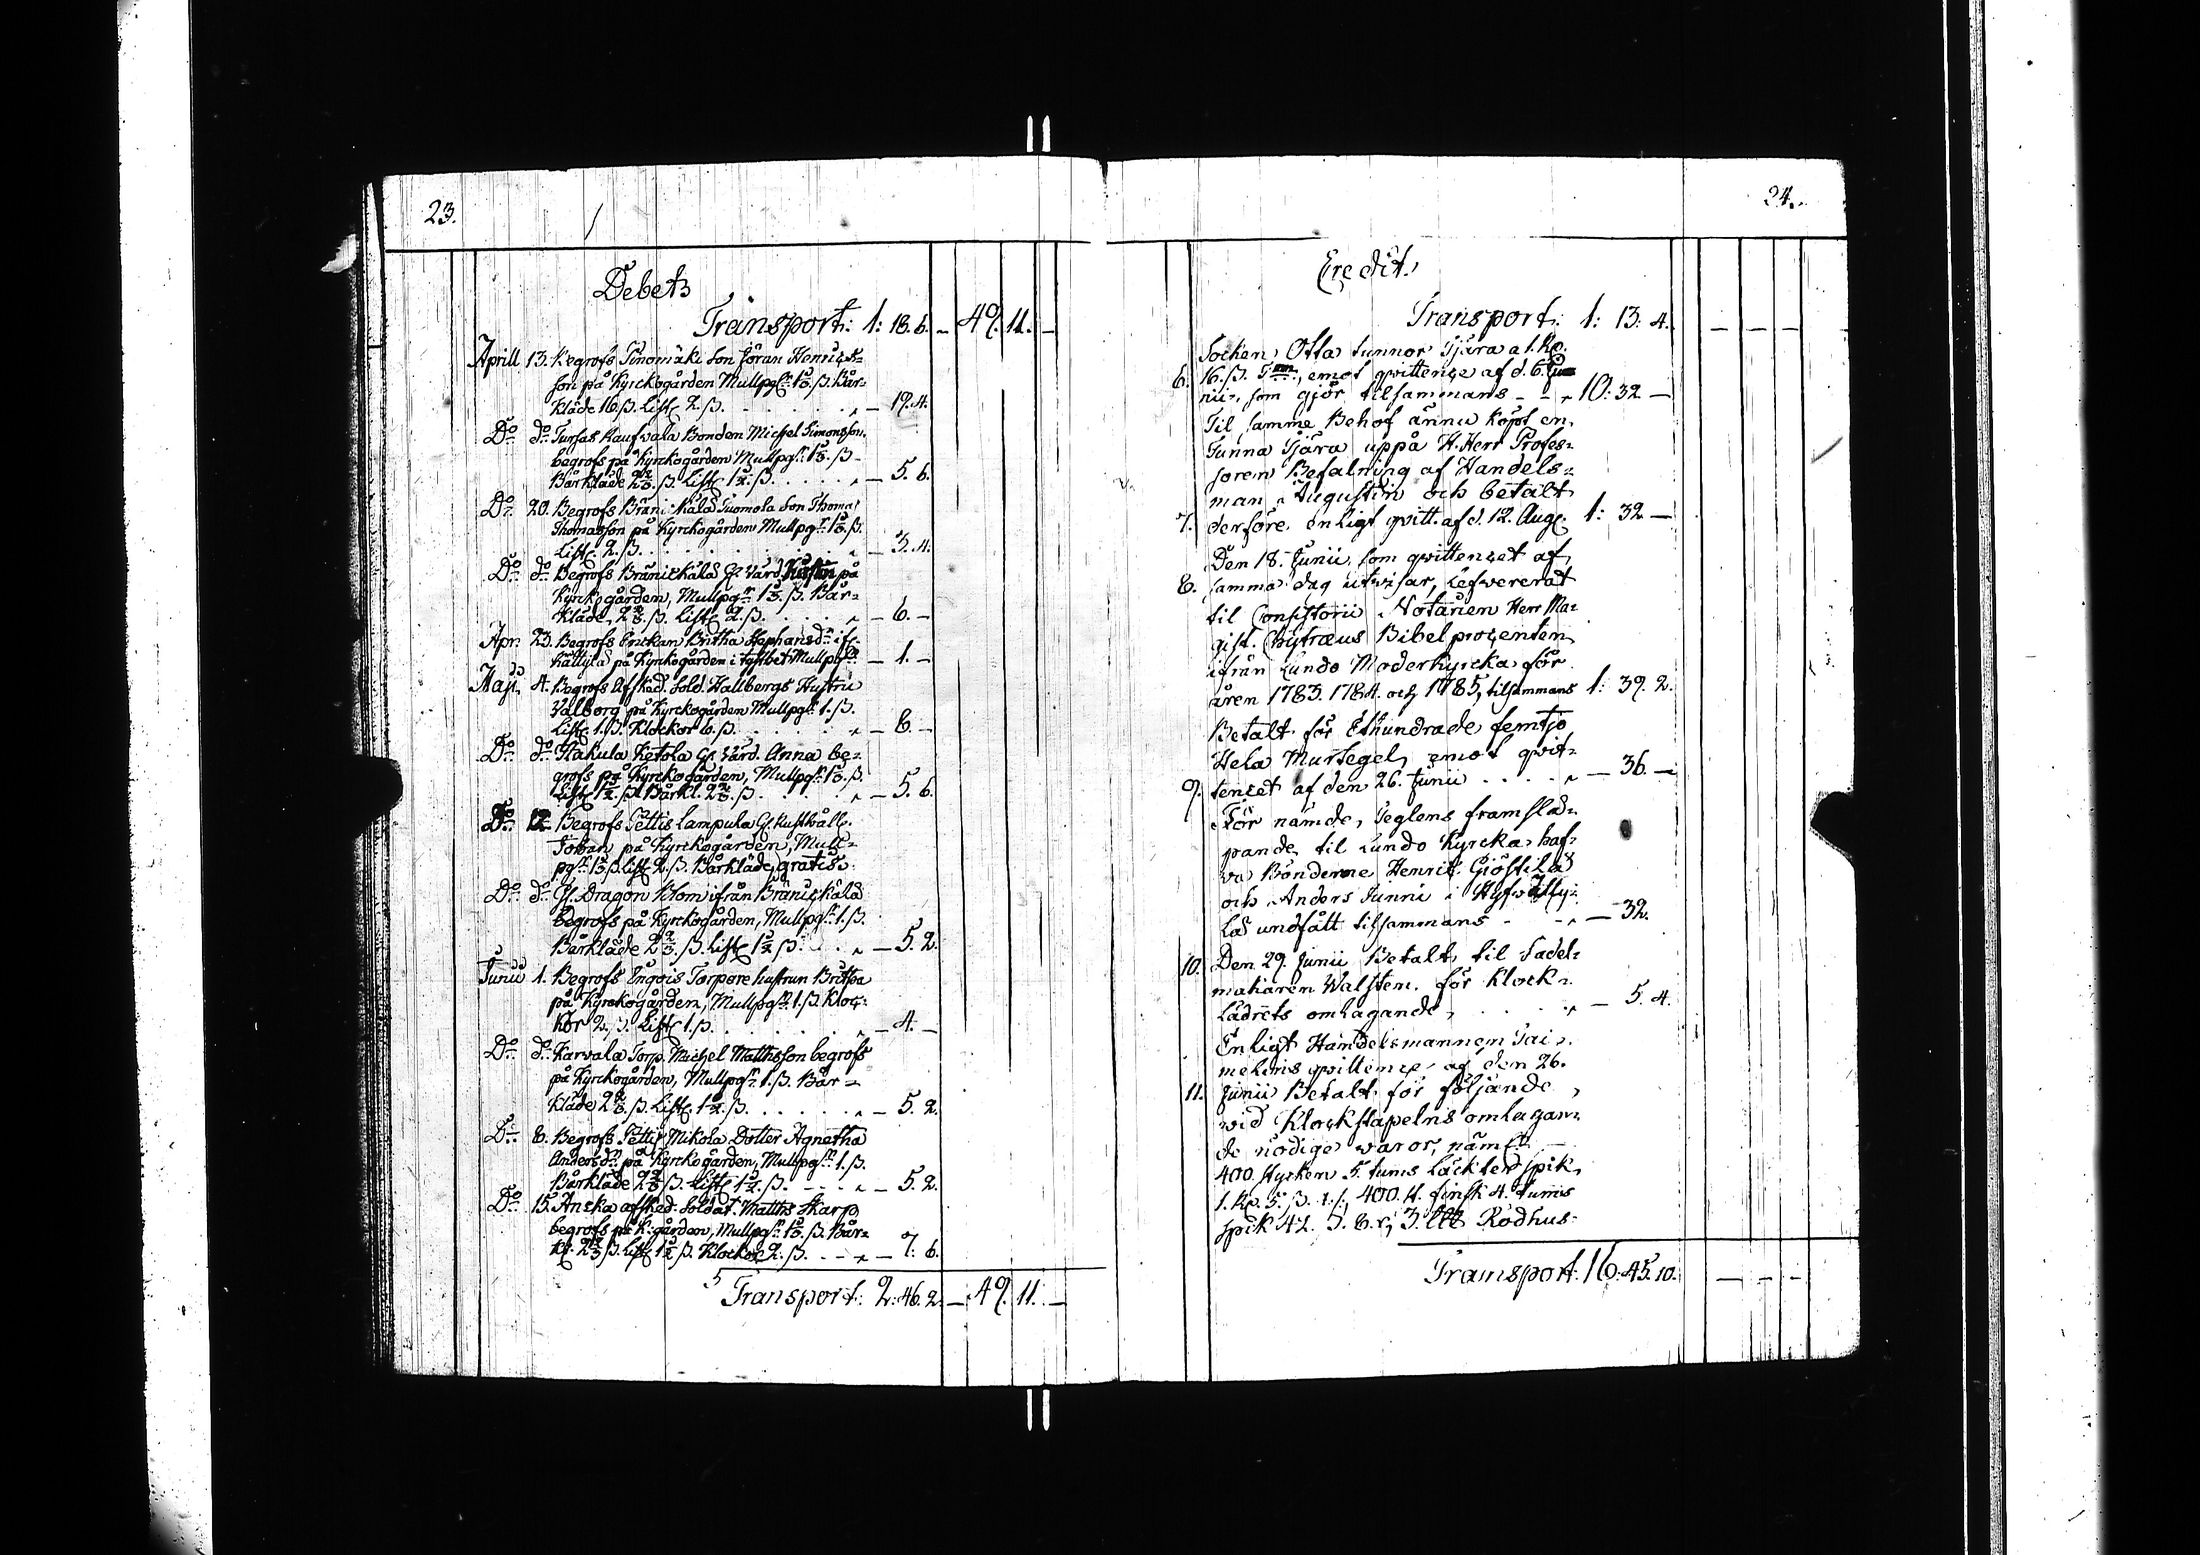 23.
Debet
Transport: 1: 18. 6. – 49. 11. –
Aprill 13. Begrofs Sinomäki Son Jöran Henrics-
son på Kyrckogården Mullpgr 1 2/3. ß. Bår-
kläde 16. ß. List. 2. ß. – 19. 4.
Do do Tursas Kaufvala Bonden Michel Simonsson
begrofs på Kyrckogården Mullpgr 1 2/3. ß.
Bårkläde 2 2/3. ß. List. 1 1/2. ß. – 5. 6.
Do 20. Begrofs Bräni kala Tuomola Son Thomas
Thomasson på Kyrckogården Mullpgr 1 2/3. ß.
List. 2. ß. – 3. 4.
Do do Begrofs Bränickälä Gl. Värd. på
Kyrckogården, Mullpgr 1 2/3. ß. Bår-
kläde 2 2/3. ß. List. 2. ß. – 6. –
Apr. 23. Begrofs Enckan Britha Stephansdr ifr.
Kättylä på Kyrckogården i Mullpgr – 1. –
Maji 4. Begrofs Afsked. Sold. Hallbergs Hustru
Valborg på Kyrckogården Mullpgr 1. ß.
List. 1. ß. Klockor 6. ß. – 8. –
Do do Nakula Ketola Gl. Värd. Anna be-
grofs på Kyrckogården, Mullpgr 1 2/3. ß.
List 1 1/2. ß. Bårkl. 2 2/3. ß. – 5. 6.
Do 12. Begrofs Pettis Lampula Gl.
Johan på Kyrckogården, Mull-
pgr 1 2/3 ß. List. 2. ß. Bårkläde gratis.
Do do Gl. Dragon Blom ifrån Bränickälä
begrofs på Kyrckogården, Mullpgr 1. ß.
Bårkläde 2 2/3. ß. List 1 1/2 ß. – 5. 2.
Junii 1. Begrofs Engois Torpare hustrun Britha
på Kyrckogården, Mullpgr 1. ß. Kloc-
kor 2. ß. List 1. ß. – 4. –
Do do Karvala Torp. Michel Matthsson begrofs
på Kyrckogården, Mullpgr 1. ß. Bår-
kläde 2 2/3. ß. List. 1 1/2. ß. – 5. 2.
Do 8. Begrofs Pettis Mikola Dotter Agnetha
Andersdr på Kyrckogården, Mullpgr 1. ß.
Bårkläde 2 2/3 ß. List 1 1/2. ß. – 5. 2.
Do 15. Anska afsked. Soldat. Matths Skarp
begrofs på K: gården, Mullpgr 1 2/3. ß. Bår-
kl. 2 2/3 ß. List 1 1/2 ß. Klockor 2. ß. – 7. 6.
Transport: 2: 46. 2. – 49. 11. –
24.
Credit
Transport: 1: 13: 4. – – –
Socken Otta tunnor Tjära a 1. Rp.
6. 16. ß. Tunn., emot qvittence af d. 6. Ju-
nii, som gjör tilsammans – 10: 32 –
Til samme Behof ännu köpt en
Tunna Tjära uppå H. Herr Profes-
sorens Befalning af Handels-
man Augustin och betalt
7. derföre enligt qvitt. af d. 12. Aug. 1: 32 –
Den 18. Junii, som qvittencet af
8. samma dag utvisar, Lefvererat
til Consistorii Notarien Herr Ma-
gist. Chytræus Bibelprocenten
ifrån Lundo Moderkyrcka för
åren 1783. 1784. och 1785, tilsammans 1: 39. 2.
Betalt för Ethundrade femtjo
Hela Mur tegel, emot qvit-
9. tencet af den 26. Junii – 36. –
För nämde Teglens framsläp-
pande til Lundo Kyrcka, haf-
va Bönderne Henric Gjöstilä
och Anders Junni i
la undfått tilsammans – 32.
10. Den 29. Junii Betalt til Sadel-
makaren Walsten för Klock-
Lädrets omlagande, – 5. 4.
Enligt Handelsmannen Tai-
melins qvittence af den 26.
11. Junii Betalt för följande
vid Klockstapelns omlagan-
de nödige varor, näml.
400. stycken 5. tums Läckter spik
1. Rp. 5. ß. 400. st. finsk 4. tums
spik 42. ß. 8. r; 3. ltt Rödhus-
Transport: 16: 45. 10. – – –